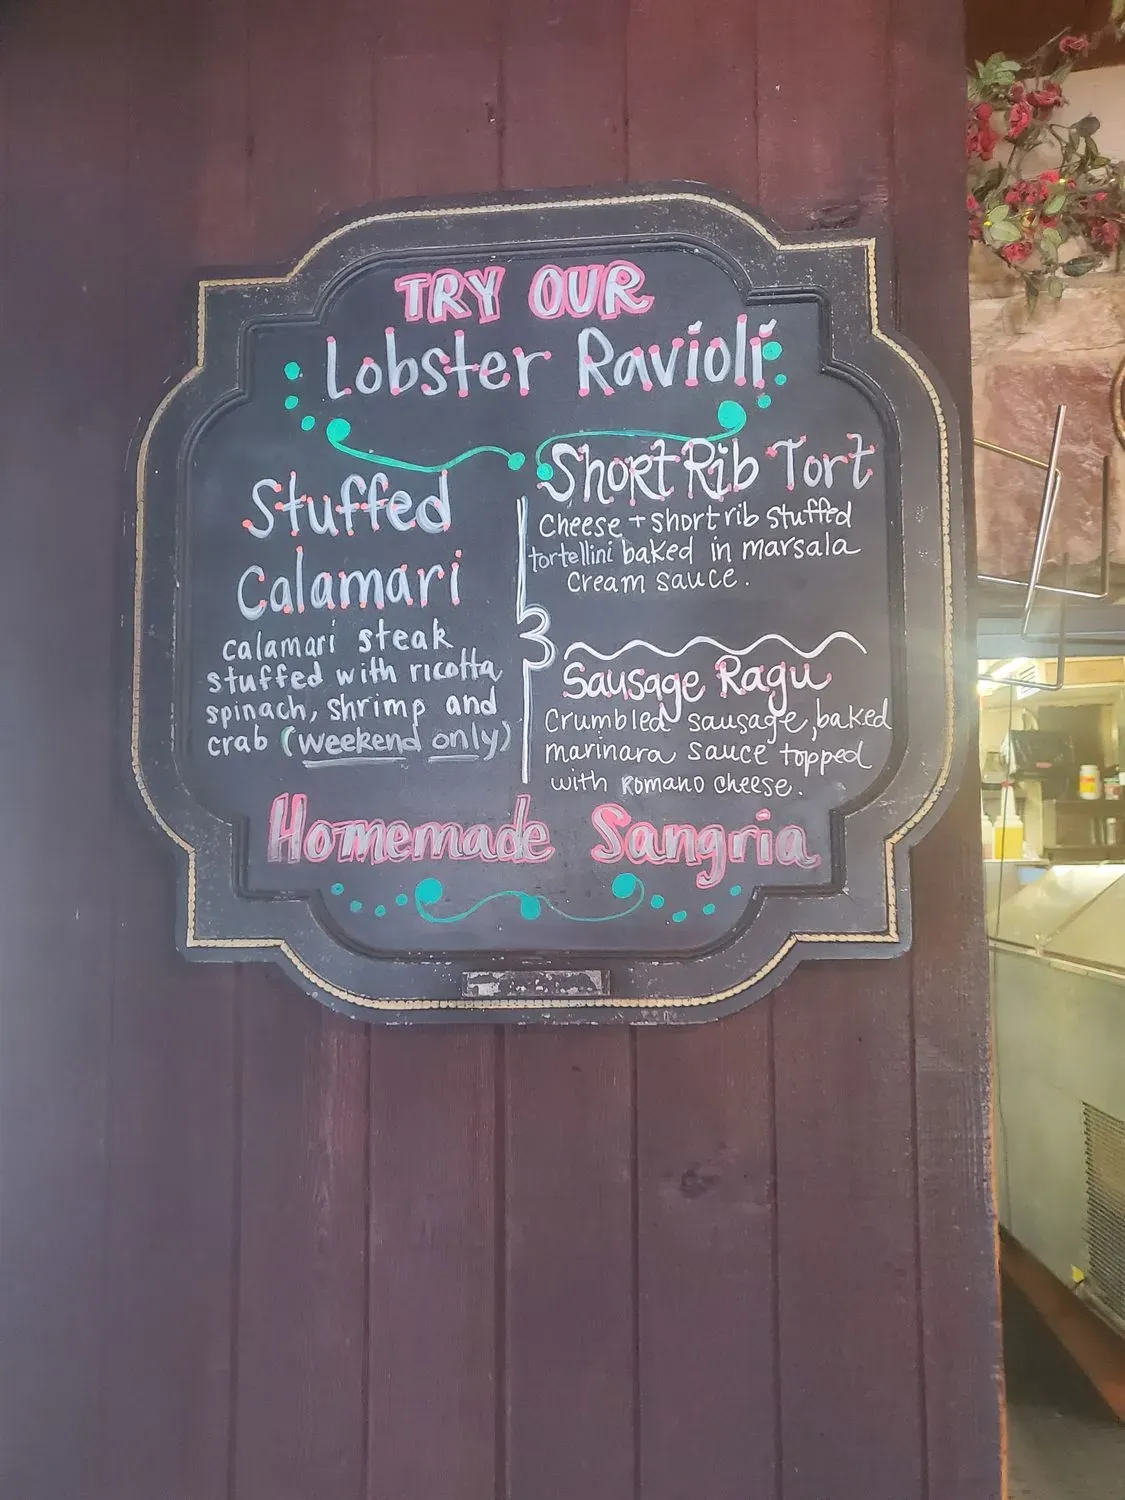 TRY OUR
Lobster Ravioli
Stuffed
Calamari
calamari steak
stuffed with ricotta
spinach, shrimp and
crab (weekend only)
Short Rib Tort
Cheese + short rib stuffed
tortellini baked in marsala
cream sauce.
Sausage Ragu
Crumbled sausage, baked
marinara sauce topped
with Romano cheese.
Homemade Sangria